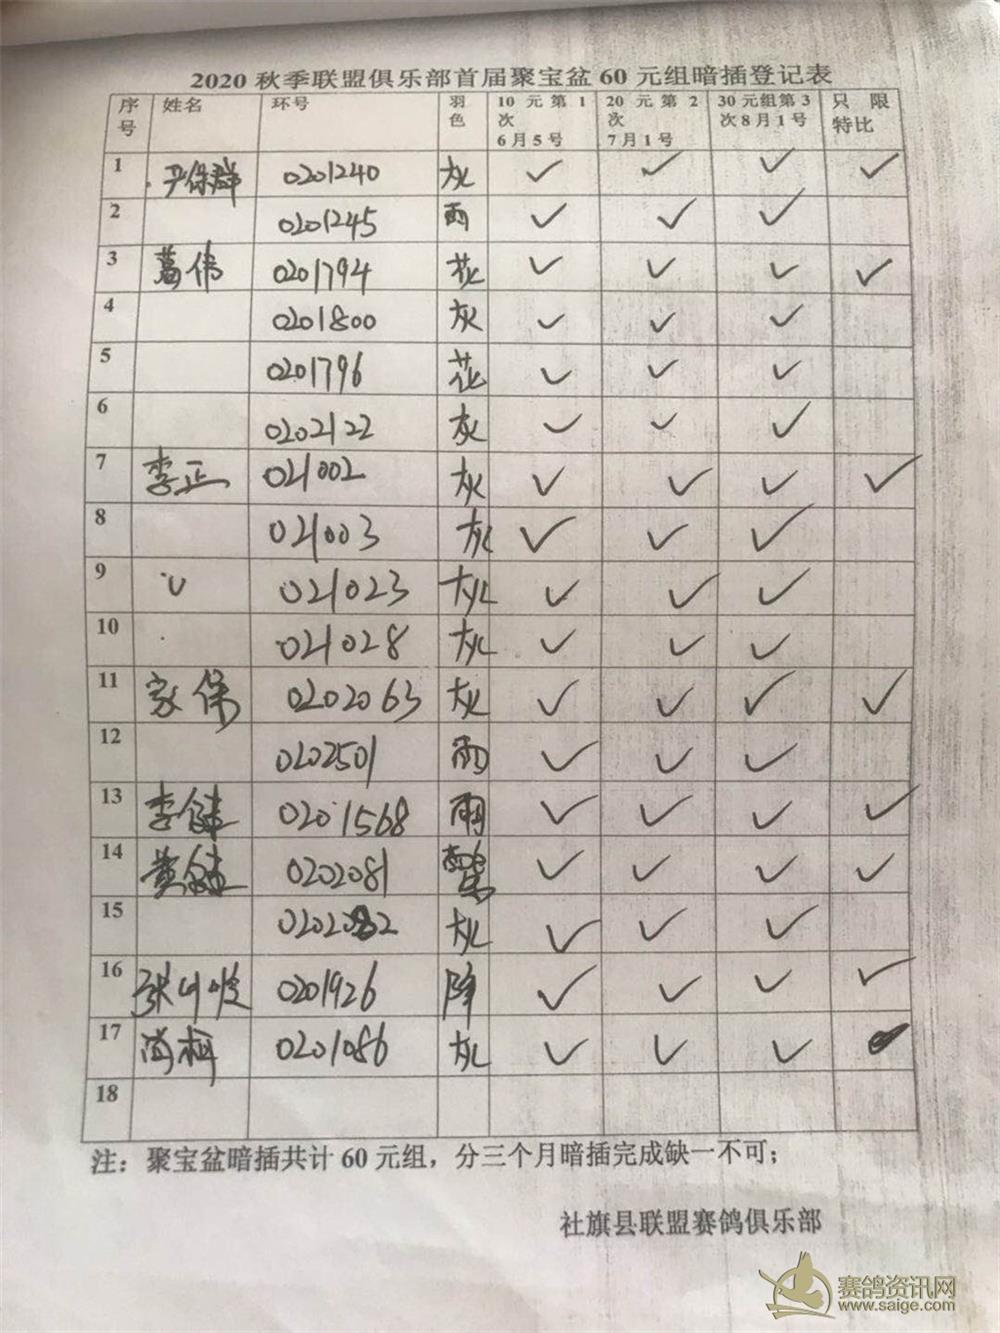 2020 秋季联盟俱乐部首届聚宝盆 60 元组暗插登记表
序号 姓名 环号 羽色 10 元第 1 次 6 月 5 号 20 元第 2 次 7 月 1 号 30 元组第 3 次 8 月 1 号 只限特比
1 尹保群 0201240 灰 ✓ ✓ ✓ ✓
2 0201245 雨 ✓ ✓ ✓
3 葛伟 0201794 花 ✓ ✓ ✓ ✓
4 0201800 灰 ✓ ✓ ✓
5 0201796 花 ✓ ✓ ✓
6 0202122 灰 ✓ ✓ ✓
7 李正 021002 灰 ✓ ✓ ✓ ✓
8 021003 灰 ✓ ✓ ✓
9 021023 灰 ✓ ✓ ✓
10 021028 灰 ✓ ✓ ✓
11 家保 0202063 灰 ✓ ✓ ✓ ✓
12 0202501 雨 ✓ ✓ ✓
13 李健 0201568 雨 ✓ ✓ ✓ ✓
14 黄健 0202081 ✓ ✓ ✓ ✓
15 0202082 灰 ✓ ✓ ✓
16 0201926 降 ✓ ✓ ✓ ✓
17 尚柯 0201086 灰 ✓ ✓ ✓
18
注：聚宝盆暗插共计 60 元组，分三个月暗插完成缺一不可；
社旗县联盟赛鸽俱乐部
赛鸽资讯网
www.saige.com